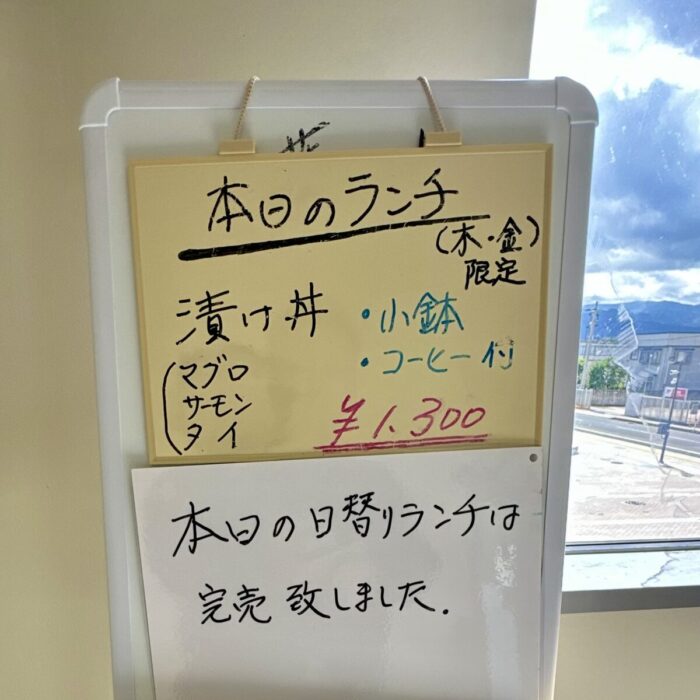 本日のランチ
(木・金)
限定
漬け丼
・小鉢
・コーヒー付
(マグロ
サーモン
タイ
¥1.300
本日の日替りランチは
完売致しました.